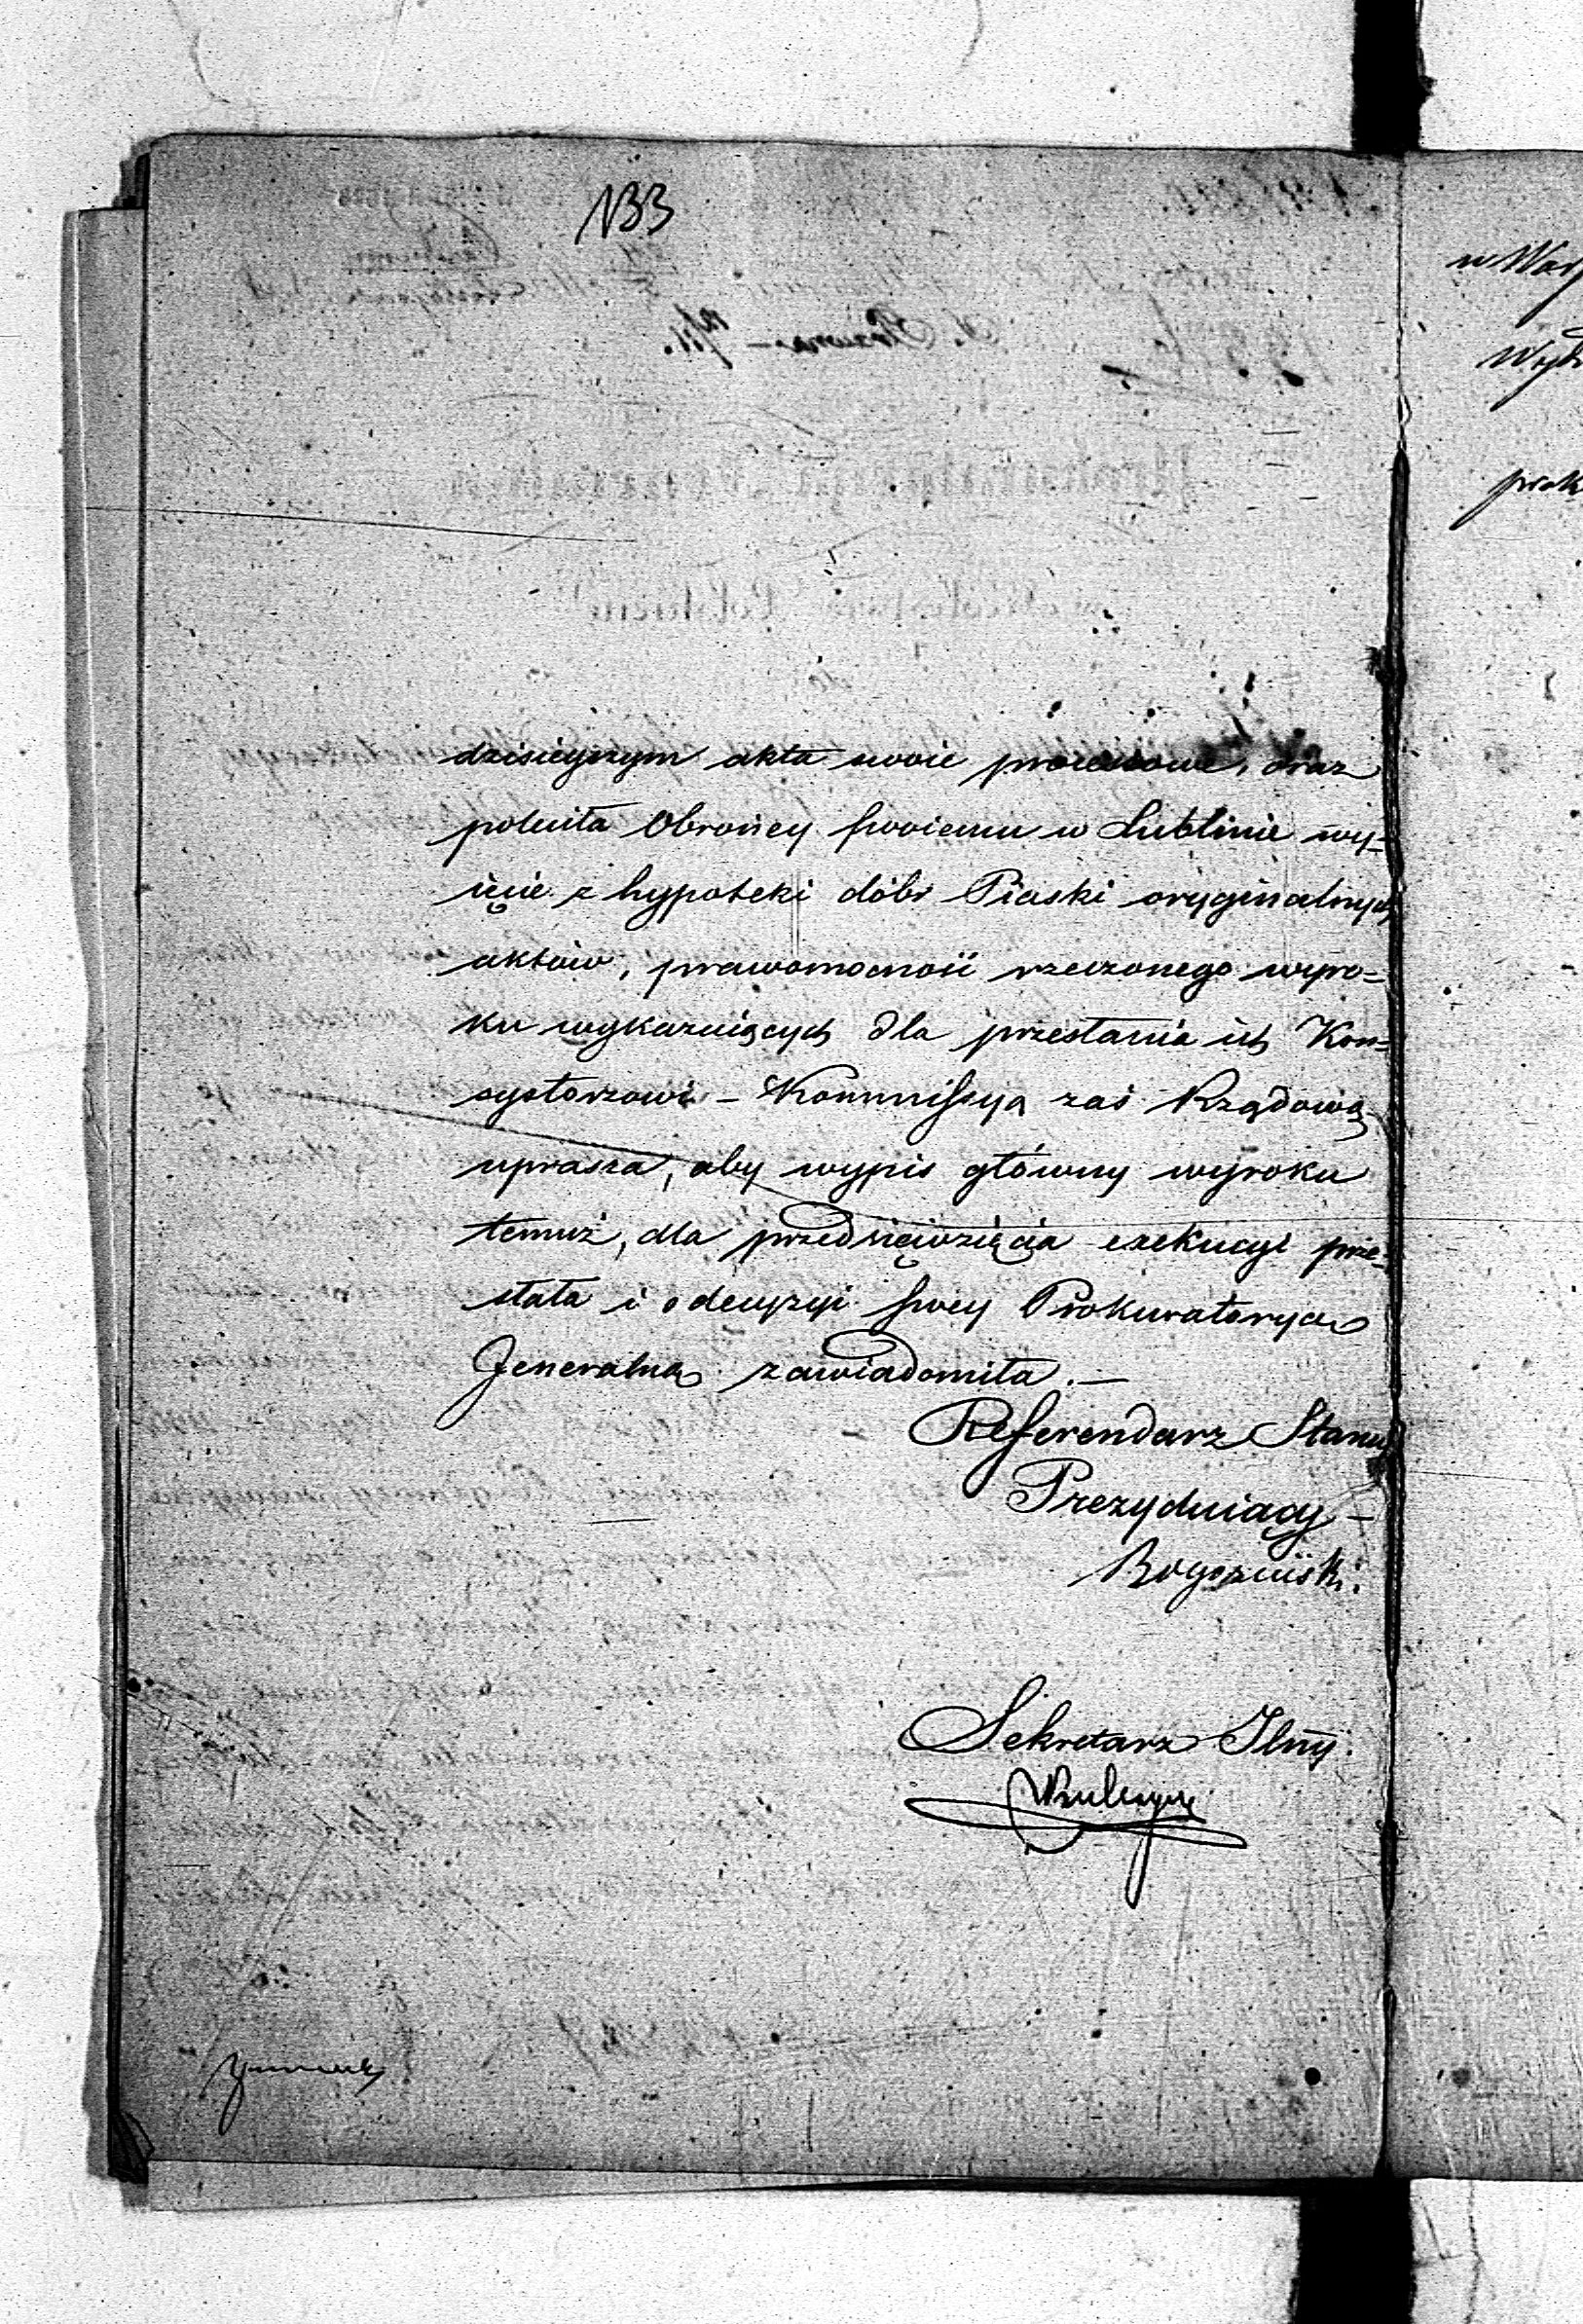 133
dzisieyszym akta swoie processowe, oraz
poleciła Obrońcy swoiemu w Lublinie wy-
ięcie z hypoteki dóbr Piaski oryginalnych
aktów, prawomocność rzeczonego wyro-
ku wykazuiących dla przesłania ich Kon-
systorzowi – Kommissyą zaś Rządową
uprasza, aby wypis główny wyroku
temuż, dla przedsięwzięcia exekucyi prze-
słała i o decyzyi swey Prokuratoryą
Jeneralną zawiadomiła. —
Referendarz Stanu
Prezyduiący –
Sekretarz Jlny.
w War